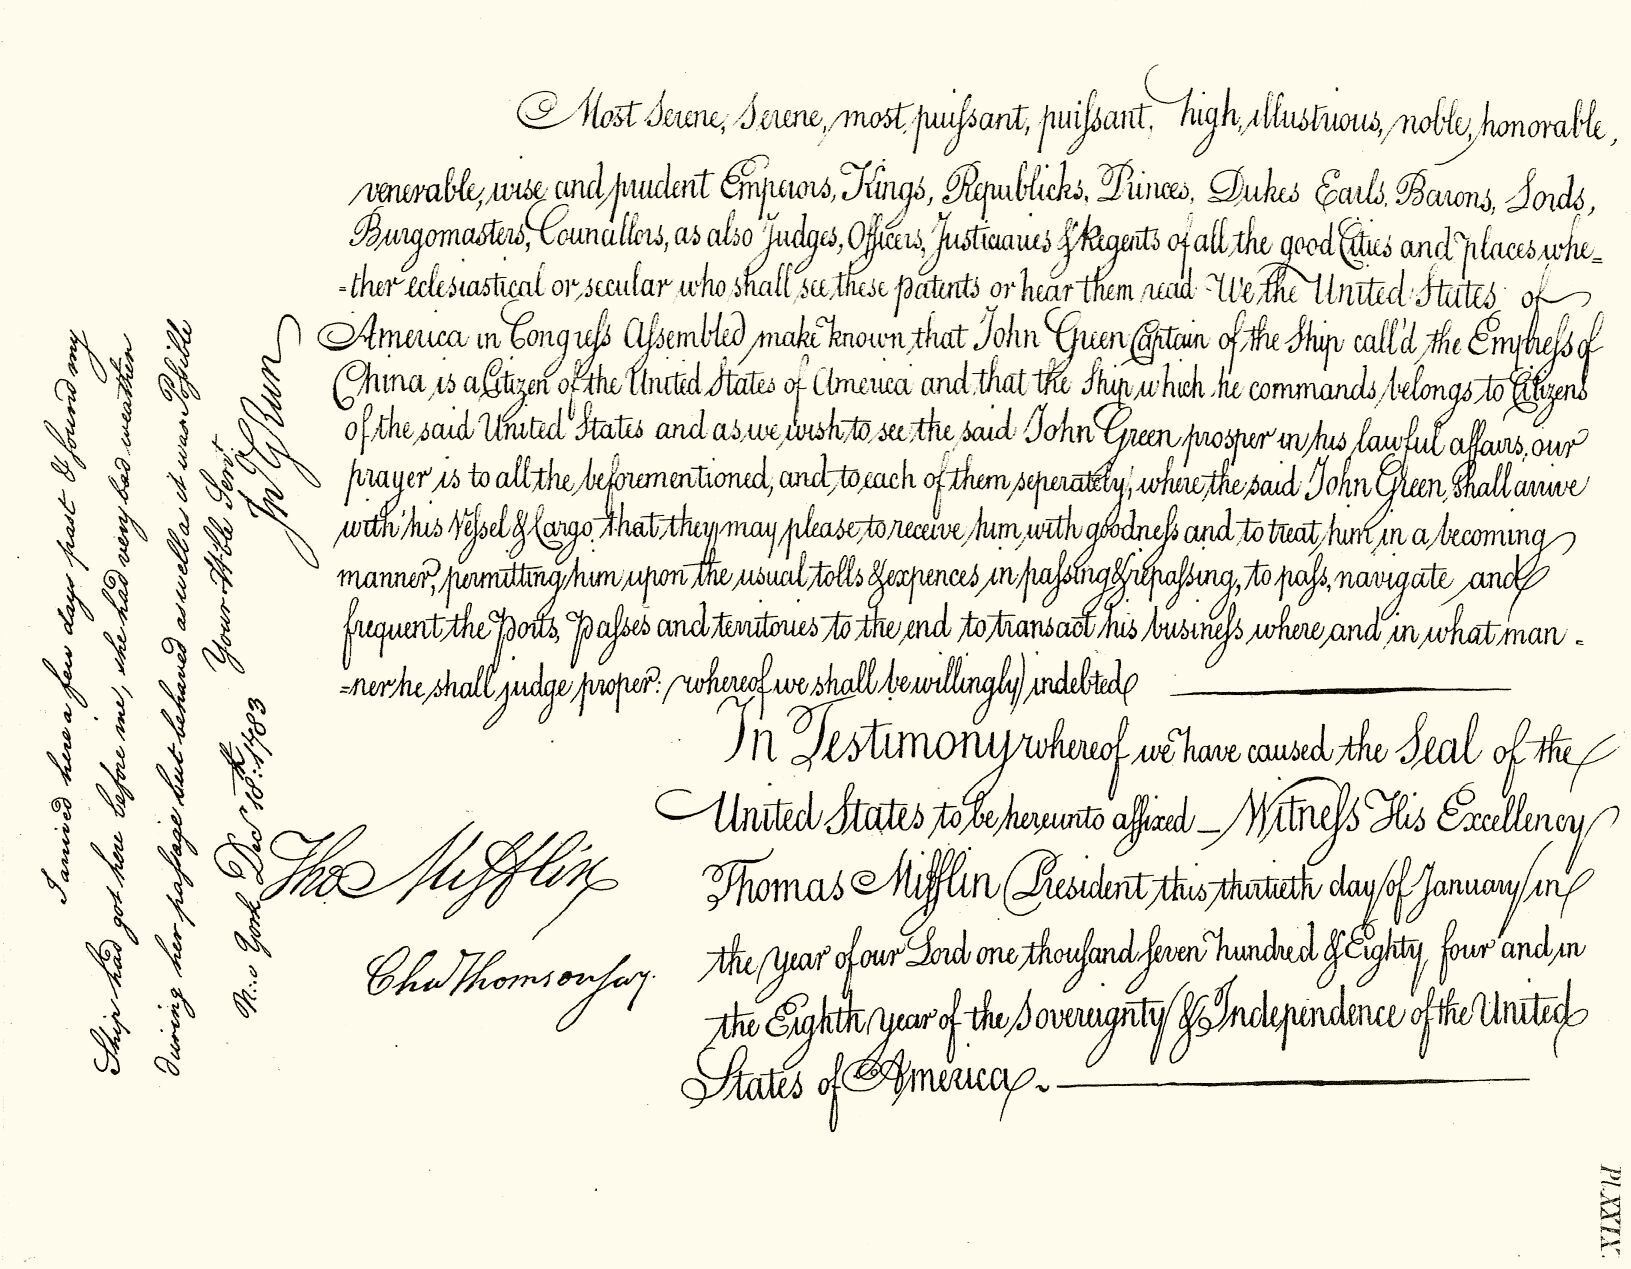 Most Serene, Serene, most puissant, puissant, high, illustrious, noble, honorable,
venerable, wise and prudent Emperors, Kings, Republicks, Princes, Dukes Earls, Barons, Lords,
Burgomasters, Councillors, as also Judges, Officers, Justiciaries & Regents of all the good Cities and places whe=
=ther eclesiastical or secular who shall see these patents or hear them read We the United States of
America in Congress Assembled make known, that John Green Captain of the Ship call'd the Empress of
China is a Citizen of the United States of America and that the Ship which he commands belongs to Citizens
of the said United States and as we wish to see the said John Green prosper in his lawful affairs, our
prayer is to all the beforementioned, and to each of them seperately, where the said John Green shall arrive
with his Vessel & Cargo, that they may please to receive him with goodness and to treat him in a becoming
manner, permitting him upon the usual tolls & expences in passing & repassing, to pass, navigate and
frequent the Ports, Passes and territories to the end to transact his business where and in what man =
=ner he shall judge proper: whereof we shall be willingly indebted
In Testimony whereof we have caused the Seal of the
United States to be hereunto affixed — Witness His Excellency
Thomas Mifflin President this thirtieth day of January in
the year of our Lord one thousand seven hundred & Eighty, four and in
the Eighth year of the Sovereignty & Independence of the United
States of America.
Tho Mifflin
Cha Thomson Secy.
I arrived here a few days past & found my
Ship had got here before me, she had very bad weather
during her passage but behaved as well as it was Possible
Your Hble Servt
Jn Green
N: York Decr 18th: 1783
Pl. XXIX.